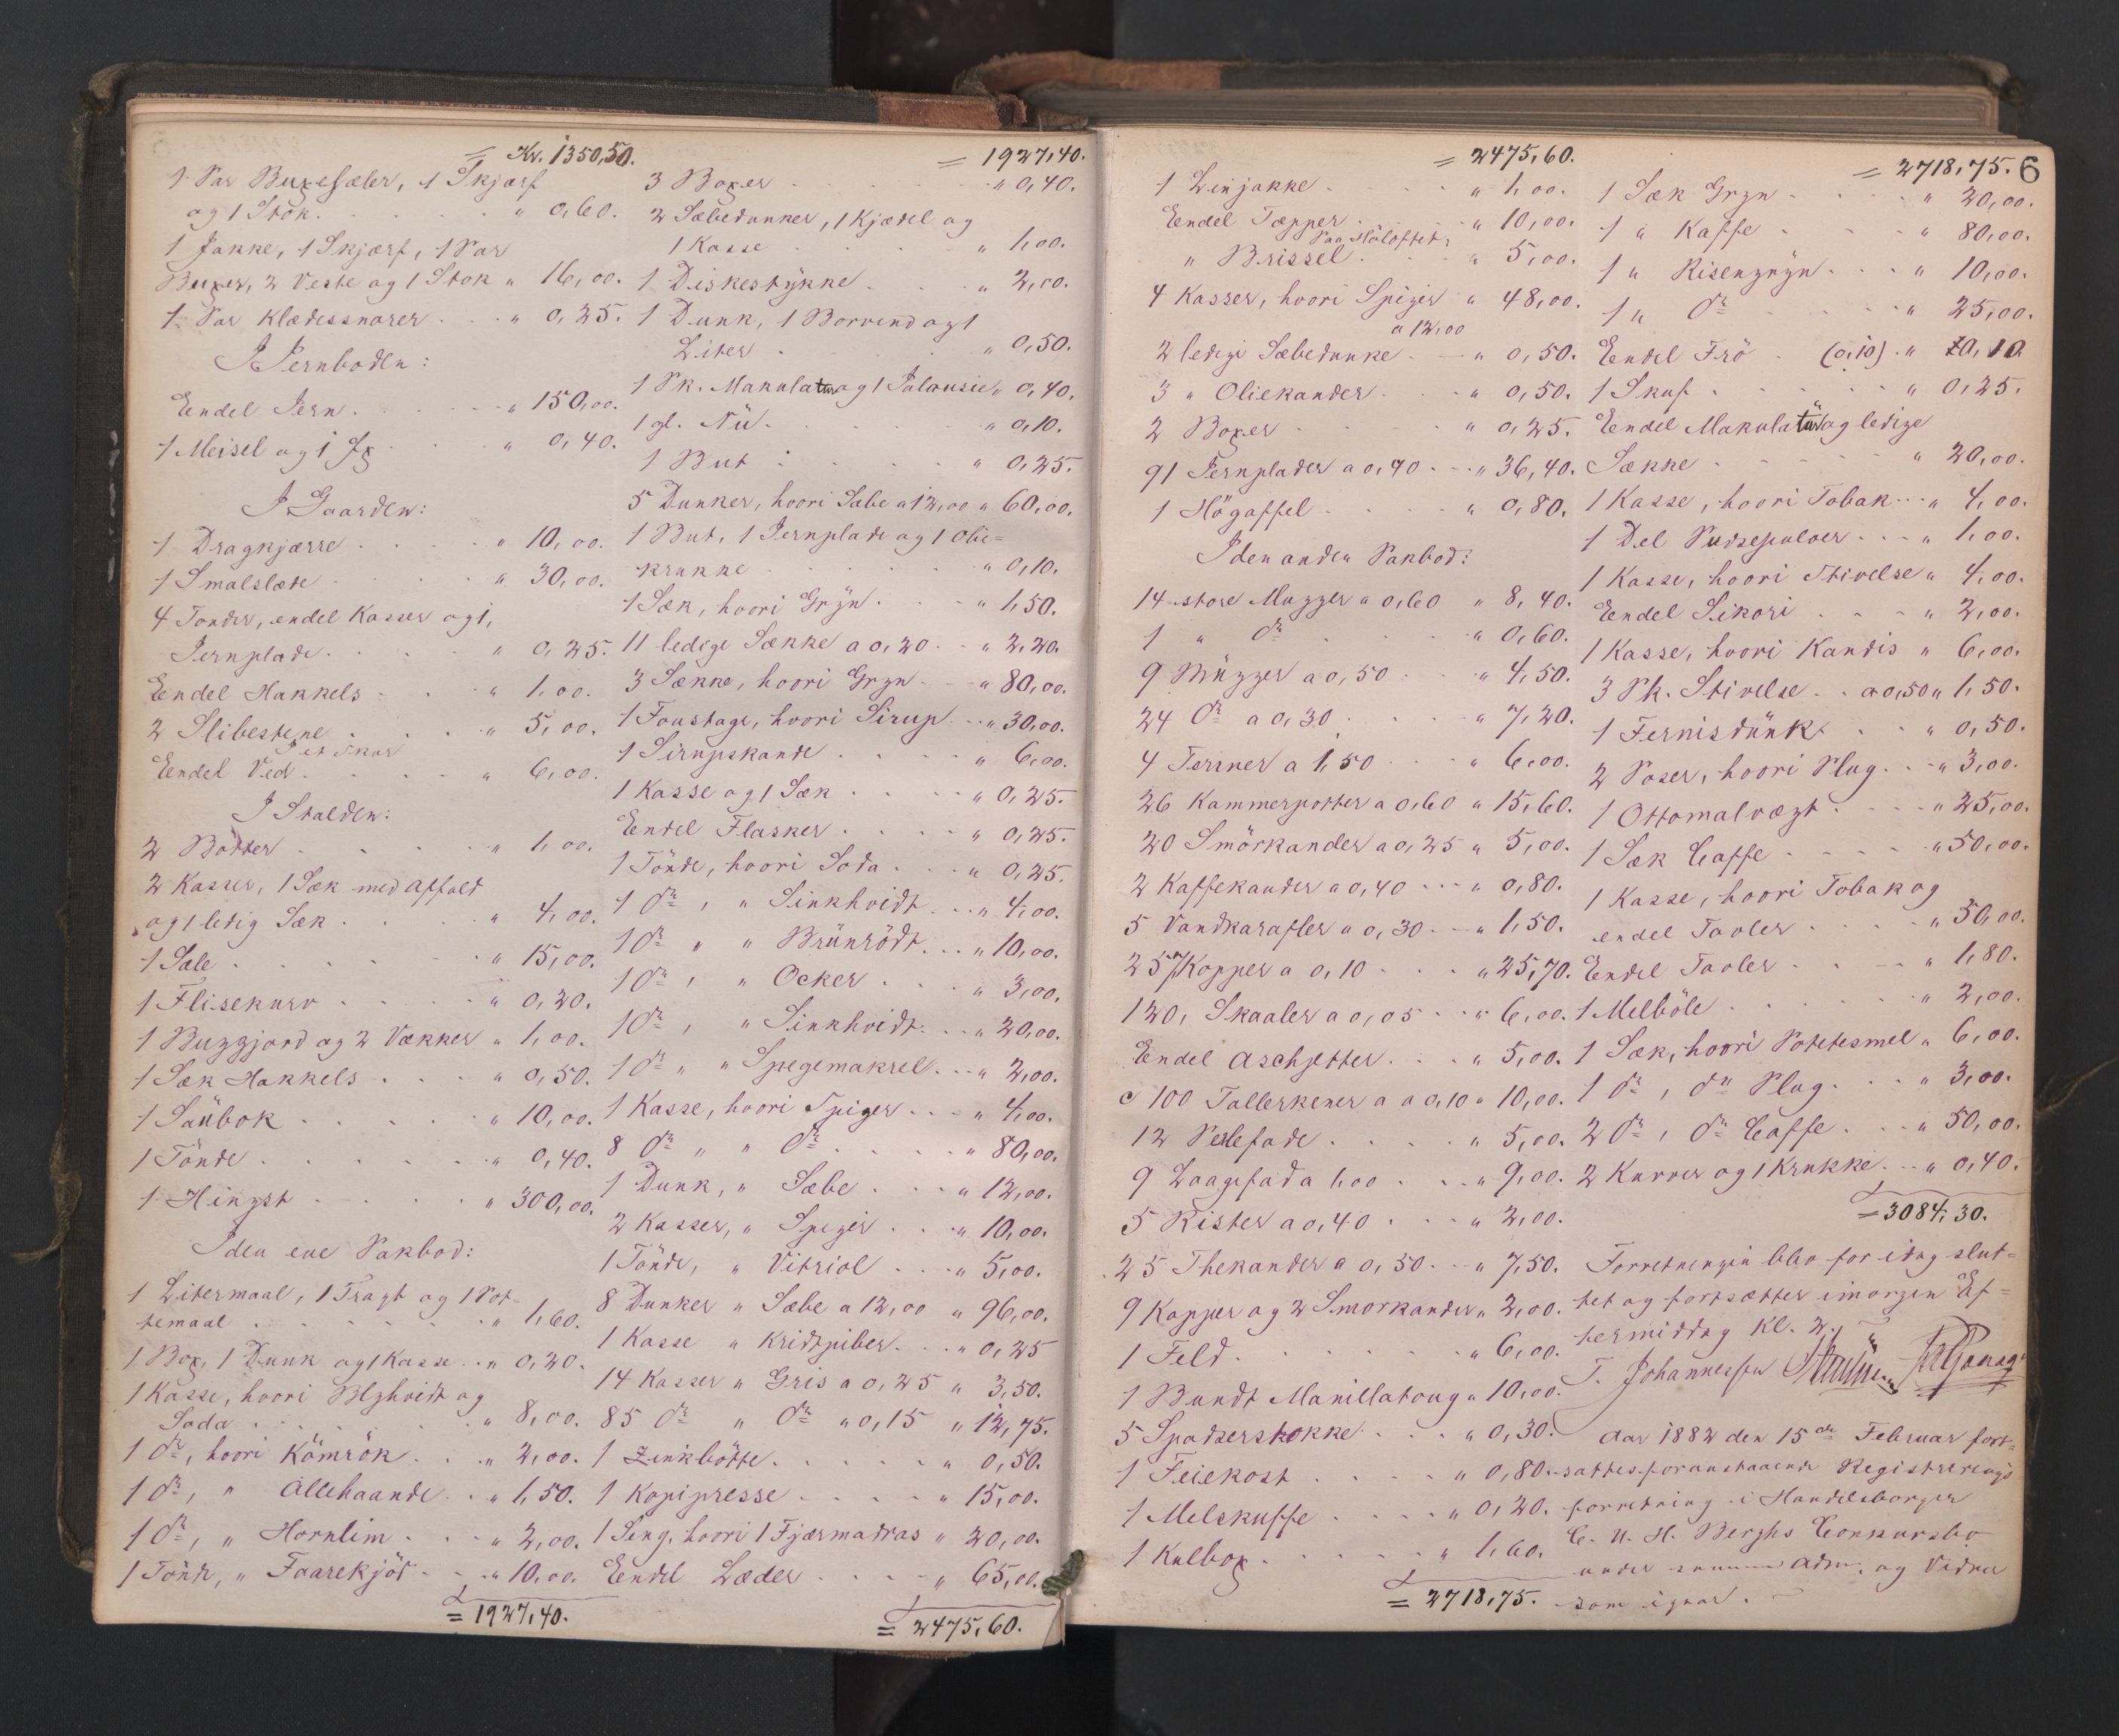 = Kr. 1350,50.
1 Par Buxesæler, 1 Skjærf
og 1 Stok . . . . . " 0,60.
1 Jakke, 1 Skjærf, 1 Par
Buxer, 2 Veste og 1 Stok " 16,00.
1 Par Klædessnorer . . . " 0,25.
I Jernboden:
Eendel Jern . . . . . " 150,00.
1 Meisel og 1 Øx . . . " 0,40.
I Gaarden:
1 Dragkjærre . . . . " 10,00.
1 Smalslæde . . . . " 30,00.
4 Tonder, endel Kasser og 1,
Jernplade . . . . " 0,25.
Eendel Hakkels . . . " 1,00.
2 Slibestene . . . . " 5,00.
I et Skur
Eendel Ved . . . . . " 6,00.
I Stalden:
2 Bötter . . . . . " 1,00.
2 Kasser, 1 Sæk med Affald
og 1 ledig Sæk . . . . " 4,00.
1 Sæle . . . . . . " 15,00.
1 Flisekurv . . . . " 0,20.
1 Buggjord og 2 Dækker " 1,00.
1 Sæk Hakkels . . . " 0,50.
1 Saübok . . . . . " 10,00.
1 Tönde . . . . . . " 0,40.
1 Hingst . . . . . " 300,00.
I den ene Pakbod:
1 Litermaal, 1 Tragt og 1 Pot-
temaal . . . . . . " 1,60.
1 Box, 1 Dunk og 1 Kasse . . " 0,20.
1 Kasse, hvori Blyhvidt og
Soda . . . . . . " 8,00.
1 do, hvori Kömrök . . . " 2,00.
1 do, " Allehaande . . " 1,50.
1 do, " Hornlim . . . " 2,00.
1 Tönde, " Faarekjöd . . . " 10,00.
= 1927,40.
= 1927,40.
3 Boxer . . . . . . " 0,40.
2 Sæbedunker, 1 Kjædel og
1 Kasse . . . . . " 1,00.
1 Diskestykke . . . . " 2,00.
1 Dunk, 1 Borvend og 1
Liter . . . . . . " 0,50.
1 Pk. Makulatur og 1 Jalousie " 0,40.
1 gl. Nü . . . . . " 0,10.
1 But . . . . . . " 0,25.
5 Dunker, hvori Sæbe a 12,00 " 60,00.
1 But, 1 Jernplade og 1 Olie=
krukke . . . . . . " 0,10.
1 Sæk, hvori Gryn . . . " 1,50.
11 ledige Sække a 0,20 . . " 2,20.
3 Sække, hvori Gryn . . . " 80,00.
1 Foustage, hvori Sirup . . . " 30,00.
1 Sirupskande . . . . " 6,00.
1 Kasse og 1 Sæk . . . . " 0,25.
Eendel Flasker . . . . " 0,25.
1 Tönde, hvori Soda . . . " 0,25.
1 do, " Sinkhvidt . . . " 4,00.
1 do " " Brünrödt . . . " 10,00.
1 do, " Ocker . . . " 3,00.
1 do, " Sinkhvidt . . . " 20,00.
1 do " " Spegemakrel . . . " 2,00.
1 Kasse, hvori Spiger . . . " 4,00.
8 do " " do . . . . . " 80,00.
1 Dunk, " Sæbe . . . " 12,00.
2 Kasser, " Speger . . . " 10,00.
1 Tönde, " Vitriol . . . " 5,00.
8 Dunker " Sæbe a 12,00 " 96,00.
1 Kasse " Kridtpiber . . . " 0,25
14 Kasser " Gris a 0,25 " 3,50.
85 do " do " 0,15 " 12,75.
1 Zinkbötte . . . . . " 0,50.
1 Kopipresse . . . . " 15,00.
1 Seng, hvori 1 Fjærmadras " 20,00.
Eendel Læder . . . . " 65,00.
= 2475,60.
= 2475,60.
1 Linjakke . . . . . " 1,00.
Eendel Tæpper . . . . " 10,00.
Paa Höloftet:
" Brissel . . . . " 5,00.
4 Kasser, hvori Spiger " 48,00.
a 12,00
2 ledige Sæbedunke . . " 0,50.
3 " Oliekander . . . " 0,50.
2 Boxer . . . . . " 0,25.
91 Jernplader a 0,40 . . . " 36,40.
1 Högaffel . . . . . " 0,80.
I den anden Pakbod:
14 store Mugger a 0,60 " 8,40.
1 " do . . . . " 0,60.
9 Mügger a 0,50 . . . " 4,50.
24 do a 0,30 . . . . " 7,20.
4 Terriner a 1,50 . . . " 6,00.
26 Kammerpotter a 0,60 " 15,60.
20 Smörkander a 0,25 " 5,00.
2 Kaffekander a 0,40 . . . " 0,80.
5 Vandkarafler a 0,30 . . . " 1,50.
257 Kopper a 0,10 . . . " 25,70.
120, Skaaler a 0,05 . . " 6,00.
Endel Aschjetter . . . " 5,00.
c 100 Tallerkener a a 0,10 " 10,00.
12 Pesefade . . . . " 5,00.
9 Laagefad a 1,00 . . . " 9,00.
5 Rister a 0,40 . . . " 2,00.
25 Thekander a 0,50 . . " 7,50.
9 Kopper og 2 Smorkander " 2,00.
1 Feld . . . . . . " 6,00.
1 Bundt Manillatoug " 10,00.
5 Spadserstokke . . . " 0,30.
1 Feiekost . . . . " 0,80.
1 Melskuffe . . . . " 0,20.
1 Kulbox . . . . . " 1,60.
= 2718,75.
= 2718,75. 6
1 Sæk Gryn . . . . " 20,00.
1 " Kaffe . . . . " 80,00.
1 " Risengryn . . . " 10,00.
1 " do . . . . . " 25,00.
Eendel Frö . (0,10) . " 0,10
1 Skuf . . . . . . " 0,25.
Eendel Makulatür og ledige
Sække . . . . . . " 20,00.
1 Kasse, hvori Tobak . . . " 4,00.
1 Del Pudsepulver . . . " 1,00.
1 Kasse, hvori Stivelse " 4,00.
Eendel Sikori . . . " 2,00.
1 Kasse, hvori Kandis " 6,00.
3 Pk. Stivelse . . a 0,50 " 1,50.
1 Fernisdünk . . . " 0,50.
2 Poser, hvori Plug . . . " 3,00.
1 Ottomalvægt . . . . " 25,00.
1 Sæk Caffe . . . . . " 50,00.
1 Kasse, hvori Tobak og
endel Tavler . . . . " 30,00.
Eendel Tavler . . . . " 1,80.
1 Melböle . . . . . . " 2,00.
1 Sæk, hvori Potetesmel " 6,00.
1 do, do Plug . . . " 3,00.
2 do, do Caffe . . . " 50,00.
2 Kurver og 1 Krukke . . " 0,40.
= 3084,30.
Forretningen blev for idag slut=
tet og fortsætter imorgen Ef=
termiddag Kl. 2.
T. Johannessen
Aar 1882 den 15de Februar fort=
sattes foranstaaende Registrerings
forretning i Handelsborger
C. U. H. Berghs Concursbo
under samme Adm. og Vidner
som igaar.